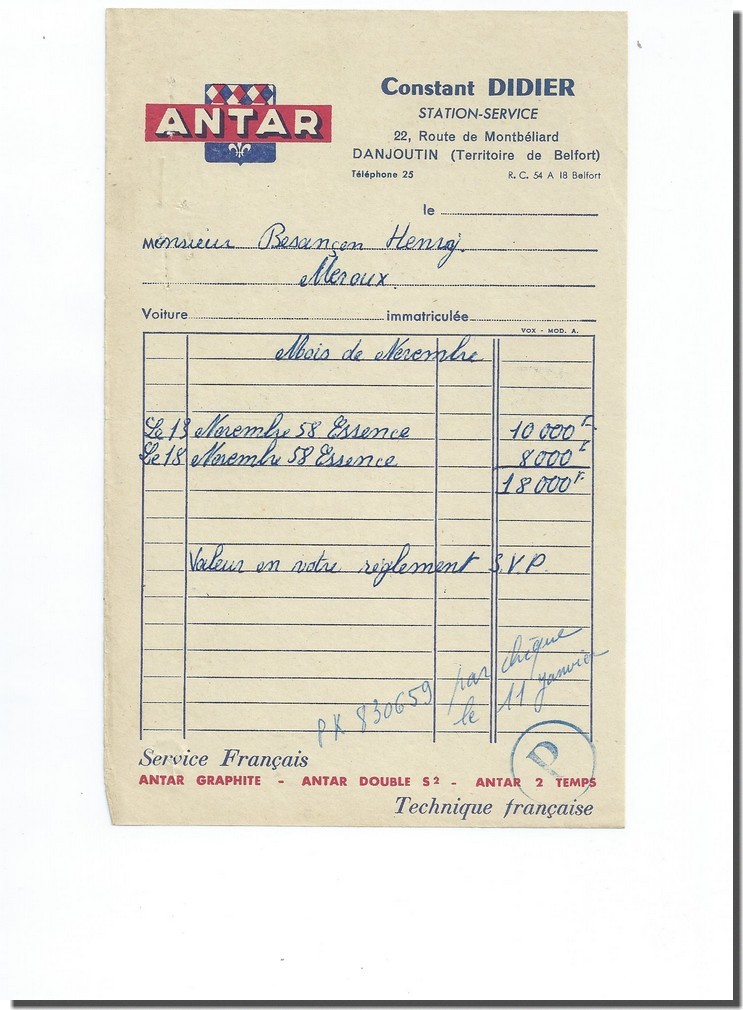 ANTAR
Constant DIDIER
STATION-SERVICE
22, Route de Montbéliard
DANJOUTIN (Territoire de Belfort)
Téléphone 25 R. C. 54 A 18 Belfort
le
Monsieur Besançon Henry.
Meroux.
Voiture immatriculée
VOX - MOD. A.
Mois de Novembre
Le 13 Novembre 58 Essence 10 000 F
Le 18 Novembre 58 Essence 8000 F
18 000 F
Valeur en votre règlement S.V.P.
par chèque
PX 830659 le 11 janvier
P
Service Français
ANTAR GRAPHITE - ANTAR DOUBLE S2 - ANTAR 2 TEMPS
Technique française